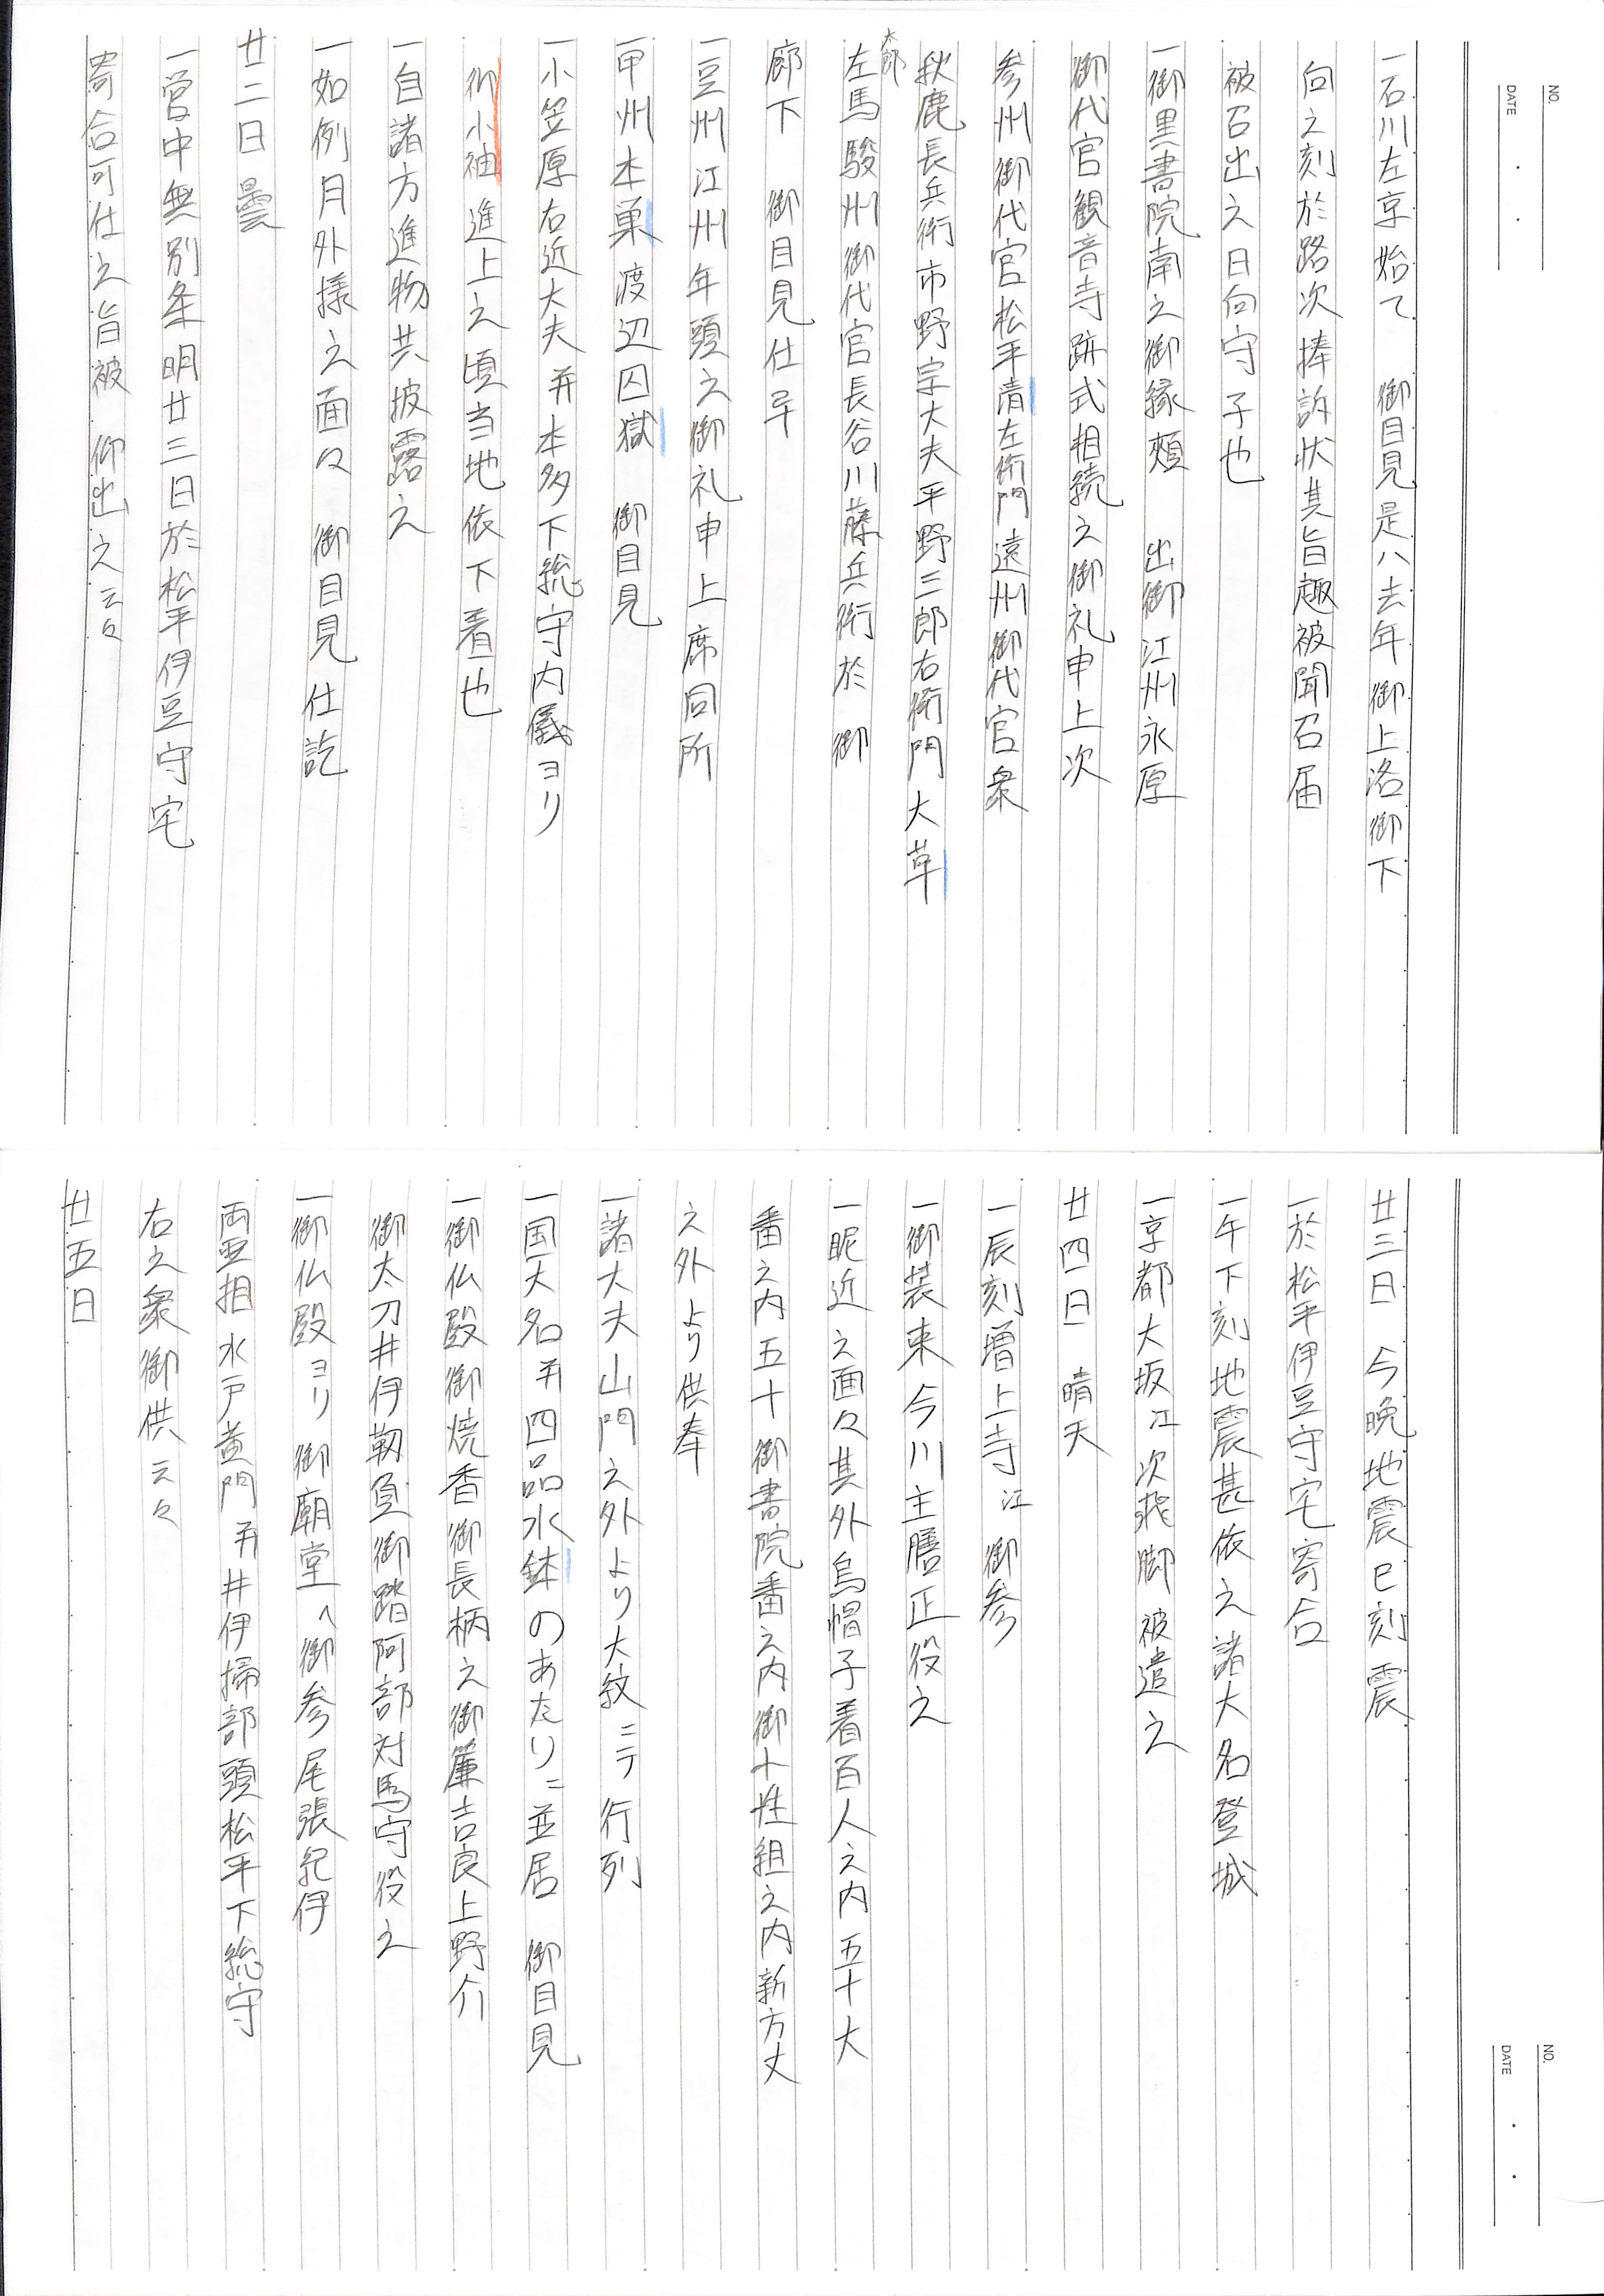 NO.
DATE
一石川左京始て　御目見是ハ去年御上洛御下
向之刻於路次捧訴状其旨趣被聞召届
被召出之日向守子也
一御黒書院南之御縁頬　出御江州永原
御代官観音寺跡式相続之御礼申上次
参州御代官松平清左衛門遠州御代官衆
秋鹿長兵衛市野宗大夫平野三郎右衛門大草
太郎
左馬駿州御代官長谷川藤兵衛於御
廊下　御目見仕畢
一豆州江州年頭之御礼申上席同所
一甲州本巣渡辺囚獄　御目見
一小笠原右近大夫并本多下総守内儀ヨリ
御小袖進上之頃当地依下着也
一自諸方進物共披露之
一如例月外様之面々　御目見仕訖
廿二日　曇
一営中無別条明廿三日於松平伊豆守宅
寄合可仕之旨被　仰出之云々
NO.
DATE
廿三日　今晩地震巳刻震
一於松平伊豆守宅寄合
一午下刻地震甚依之諸大名登城
一京都大坂江次飛脚被遣之
廿四日　晴天
一辰刻増上寺江　御参
一御装束今川主膳正役之
一昵近之面々其外烏帽子着百人之内五十大
番之内五十御書院番之内御小性組之内新方丈
之外より供奉
一諸大夫山門之外より大紋ニテ行列
一国大名并四品水鉢のあたりニ並居　御目見
一御仏殿御焼香御長柄之御簾吉良上野介
御太刀井伊靱負御踏阿部対馬守役之
一御仏殿ヨリ　御廟堂へ御参尾張紀伊
両亜相水戸黄門并井伊掃部頭松平下総守
右之衆御供云々
廿五日